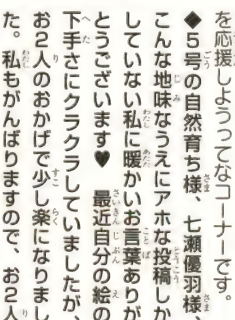 を応援しようってなコーナーです。
◆５号の自然育ち様、七瀬優羽様、
こんな地味なうえにアホな投稿しか
していない私に暖かいお言葉ありが
とうございます♥　最近自分の絵の
下手さにクラクラしていましたが、
お２人のおかげで少し楽になりまし
た。私もがんばりますので、お２人